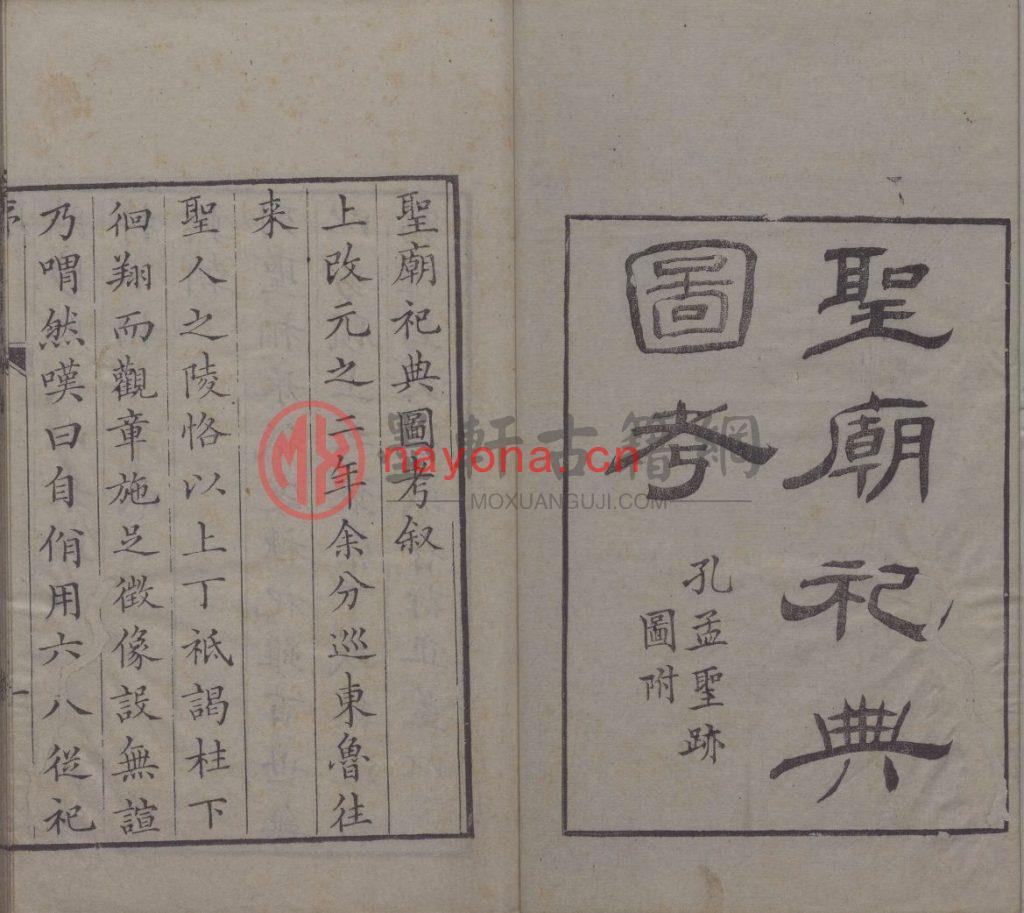 聖廟祀典
圖考
孔孟聖跡
圖附
聖廟祀典圖考叙
上改元之二年余分巡東魯往
来
聖人之陵恪以上丁祗謁柱下
徊翔而觀章施足徵像設無諠
乃喟然嘆曰自俏用六八從祀
墨軒古籍網
nayona.cn
MOXUANGUJI.COM